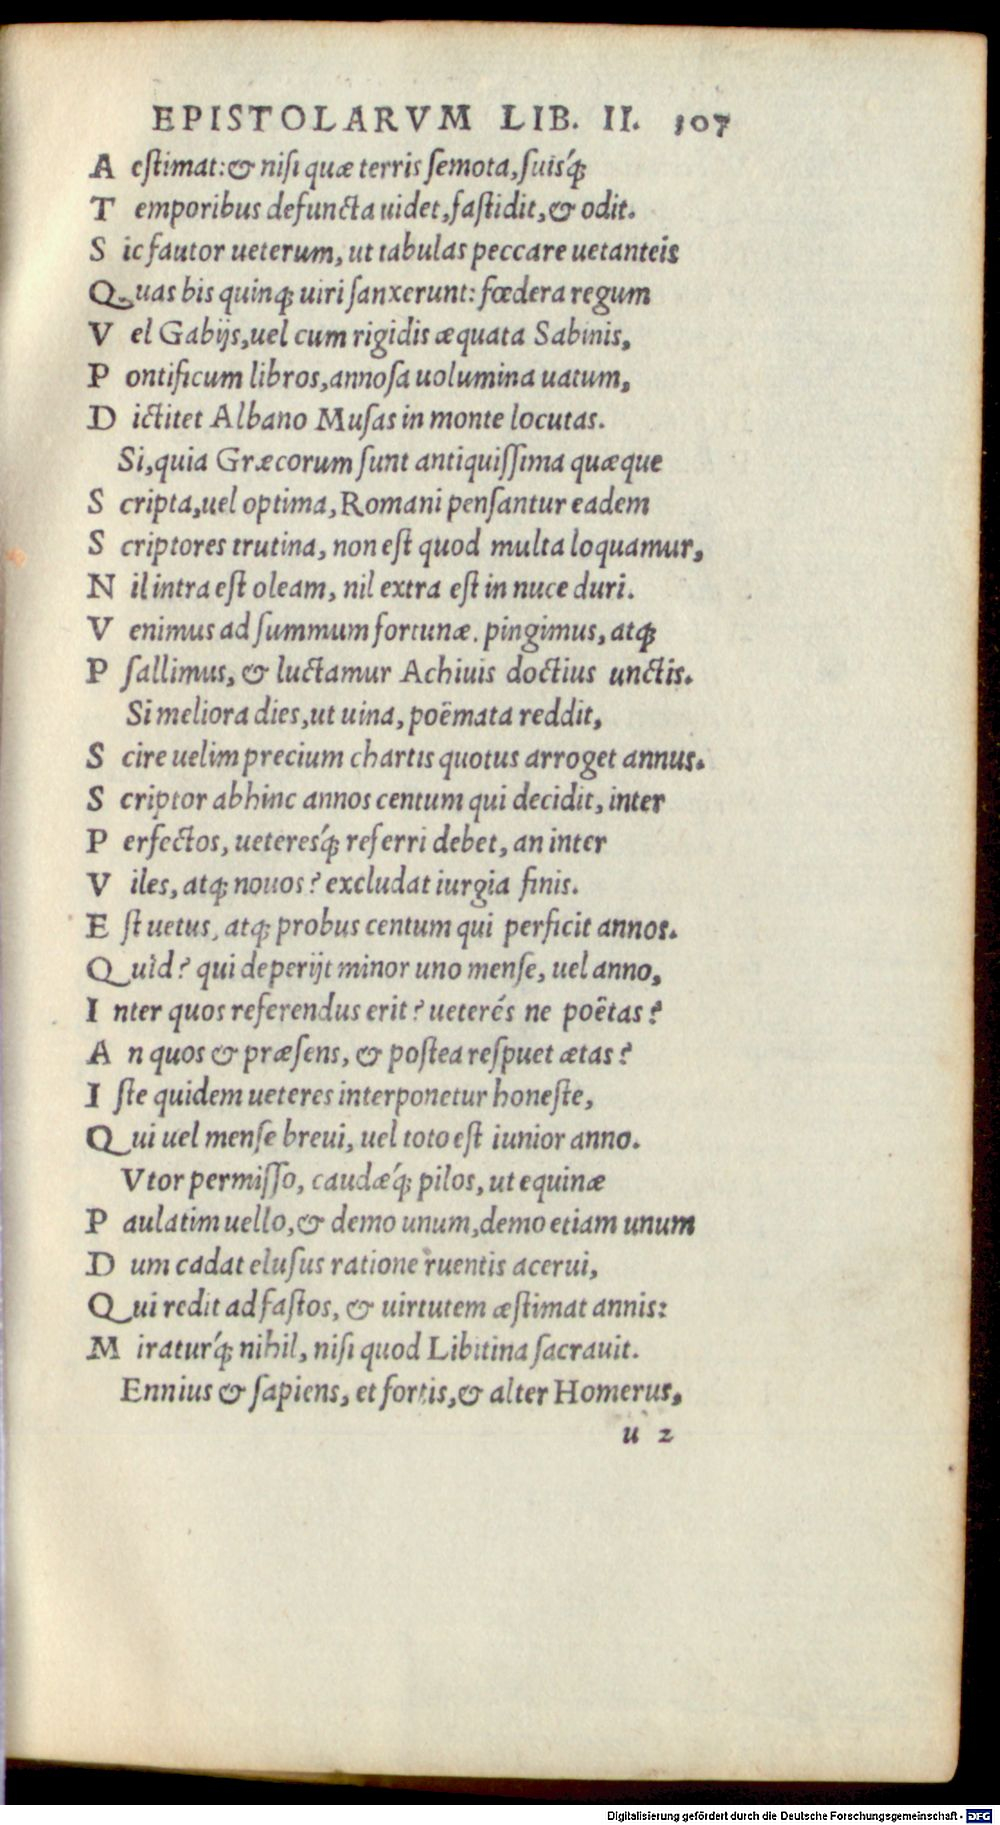 EPISTOLARVM LIB. II. 107
A estimat:& niſi quæ terris ſemota,ſuisq́ꝫ
T emporibus defuncta uidet,faſtidit,& odit.
S ic fautor ueterum, ut tabulas peccare uetanteis
Q uas bis quinqꝫ uiri ſanxerunt: fœdera regum
V el Gabijs,uel cum rigidis æquata Sabinis,
P ontificum libros,annoſa uolumina uatum,
D ictitet Albano Muſas in monte locutas.
Si,quia Græcorum ſunt antiquiſſima quæque
S cripta,uel optima, Romani penſantur eadem
S criptores trutina, non eſt quod multa loquamur,
N il intra eſt oleam, nil extra eſt in nuce duri.
V enimus ad ſummum fortunæ. pingimus, atqꝫ
P ſallimus, & luctamur Achiuis doctius unctis.
Si meliora dies,ut uina, poëmata reddit,
S cire uelim precium chartis quotus arroget annus.
S criptor abhinc annos centum qui decidit, inter
P erfectos, ueteresq́ꝫ referri debet, an inter
V iles, atqꝫ nouos? excludat iurgia finis.
E ſt uetus, atqꝫ probus centum qui perficit annos.
Q uid? qui deperijt minor uno menſe, uel anno,
I nter quos referendus erit? ueterés ne poëtas?
A n quos & præſens, & poſtea reſpuet ætas?
I ſte quidem ueteres interponetur honeſte,
Q ui uel menſe breui, uel toto eſt iunior anno.
Vtor permiſſo, caudæq́ꝫ pilos, ut equinæ
P aulatim uello,& demo unum,demo etiam unum
D um cadat eluſus ratione ruentis acerui,
Q ui redit ad faſtos, & uirtutem æſtimat annis:
M iraturq́ꝫ nihil, niſi quod Libitina ſacrauit.
Ennius & ſapiens, et fortis,& alter Homerus,
u 2
Digitalisierung gefördert durch die Deutsche Forschungsgemeinschaft - DFG